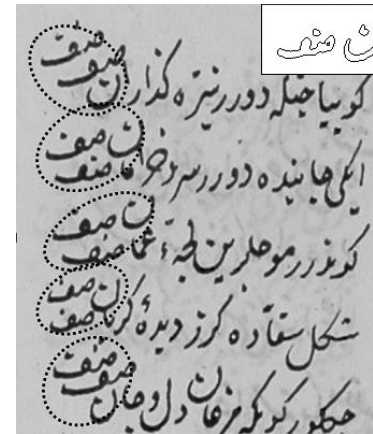 ن صف
كوييا جنكه دورر نيزه كذاران صف صف
ايكى جانبده دورر سرو خرامان صف صف
كوندرر موجلرين لجهٔ عمان صف صف
شكل سقاده كزر ديدهٔ كريان صف صف
چكلور كويكه مرغان دل و جان صف صف